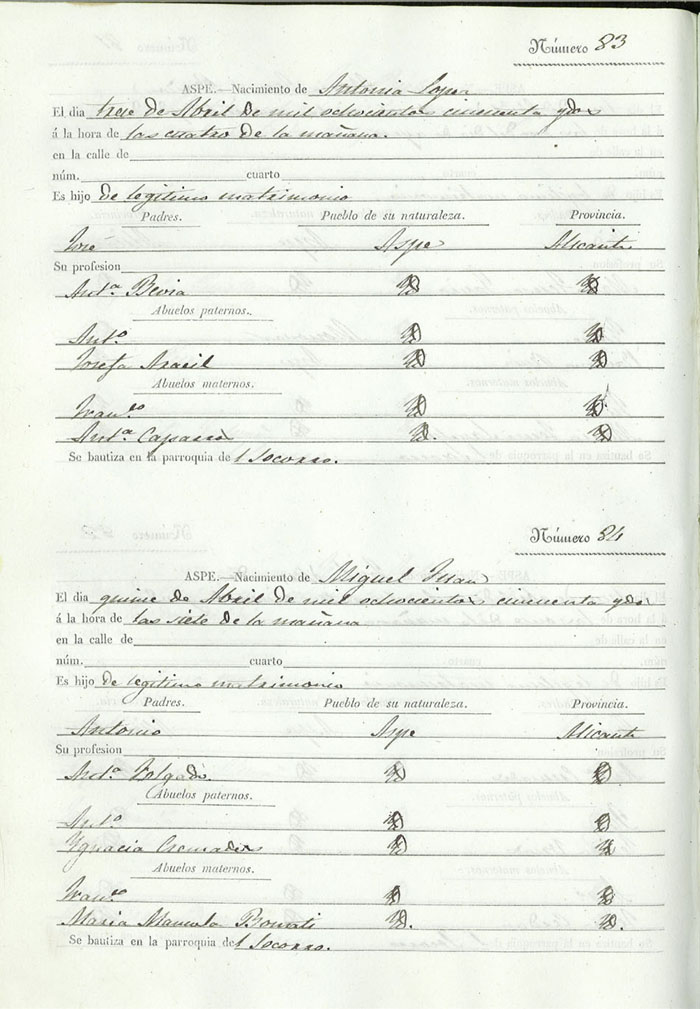 Número 83
ASPE.—Nacimiento de Antonia Lopez
El dia trece de Abril de mil ochocientos cincuenta y dos
á la hora de las cuatro de la mañana.
en la calle de
núm. cuarto
Es hijo de legitimo matrimonio
Padres. Pueblo de su naturaleza. Provincia.
José Aspe Alicante
Su profesion
Antª
Abuelos paternos.
Antº
Josefa Aracil
Abuelos maternos.
Franco
Antª
Se bautiza en la parroquia del Socorro.
Número 84
ASPE.—Nacimiento de Miguel Juan
El dia quince de Abril de mil ochocientos cincuenta y dos
á la hora de las siete de la mañana
en la calle de
núm. cuarto
Es hijo de legitimo matrimonio
Padres. Pueblo de su naturaleza. Provincia.
Antonio Aspe Alicante
Su profesion
Antª
Abuelos paternos.
Antº
Ygnacia Cremades
Abuelos maternos.
Franco
Maria Manuela
Se bautiza en la parroquia del Socorro.